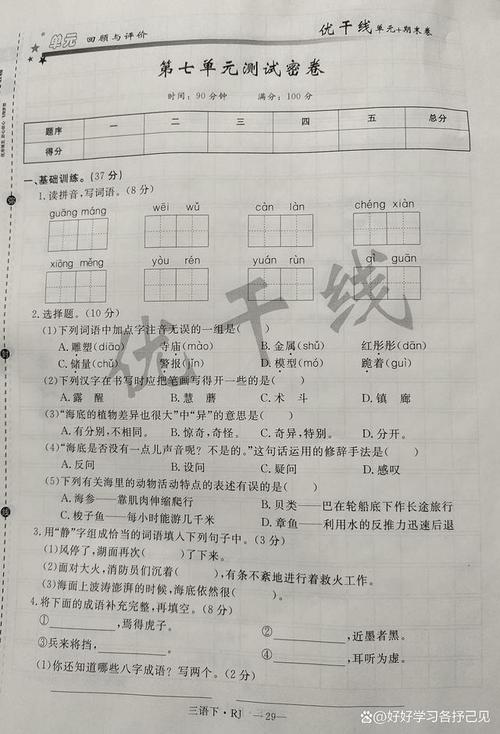 单元 回顾与评价
优干线 单元+期末卷
第七单元测试密卷
时间:90分钟 满分:100分
题序 一 二 三 四 五 总分
得分
一、基础训练。(37分)
1.读拼音,写词语。(8分)
guāng máng wēi wǔ càn làn chéng xiàn
xiōng měng yòu rén yuán rùn qì guān
2.选择题。(10分)
(1)下列词语中加点字注音无误的一组是( )
A.雕塑(diāo) 寺庙(mào) B.金属(shǔ) 红彤彤(dān)
C.储量(chǔ) 警报(jǐn) D.模型(mó) 跪着(guì)
(2)下列汉字在书写时应把笔画写得开一些的是( )
A.露 醒 B.慧 蘑 C.术 斗 D.镇 廊
(3)“海底的植物差异也很大”中“异”的意思是( )
A.有分别,不相同。 B.惊奇,奇怪。 C.奇异,特别。 D.分开。
(4)“海底是否没有一点儿声音呢? 不是的。”这句话运用的修辞手法是( )
A.反问 B.设问 C.疑问 D.感叹
(5)下列有关海里的动物活动特点的表述有误的是( )
A.海参——靠肌肉伸缩爬行 B.贝类——巴在轮船底下作长途旅行
C.梭子鱼——每小时能游几千米 D.章鱼——利用水的反推力迅速后退
3.用“静”字组成恰当的词语填入下列句子中。(3分)
(1)风停了,湖面再次( )了下来。
(2)面对大火,消防员们沉着( ),有条不紊地进行着救火工作。
(3)海面上波涛澎湃的时候,海底依然很( )。
4.将下面的成语补充完整,再填空。(8分)
①________,焉得虎子。 ②________,近墨者黑。
③兵来将挡,________。 ④________,耳听为虚。
(1)你还知道哪些八字成语? 写两个。(2分)
三语下·RJ —29—
优干线
@好好学习各抒己见